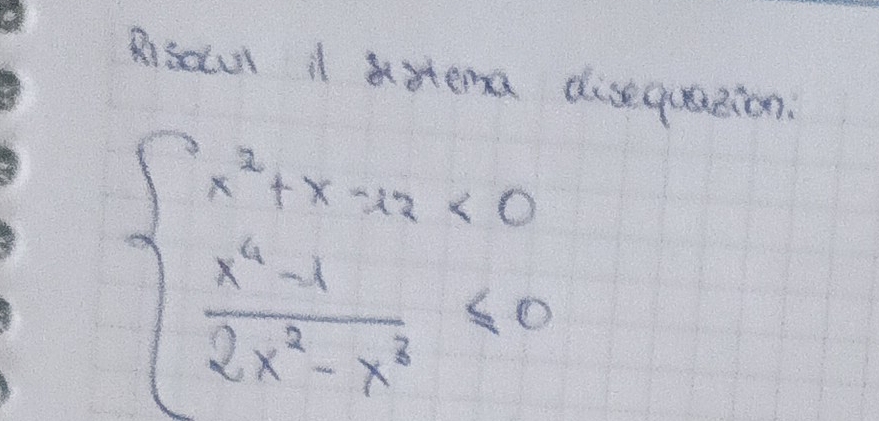 Risolvi il sistema disequazioni
x² + x - 12 < 0
x⁴ - 1
2x² - x³ ≤ 0